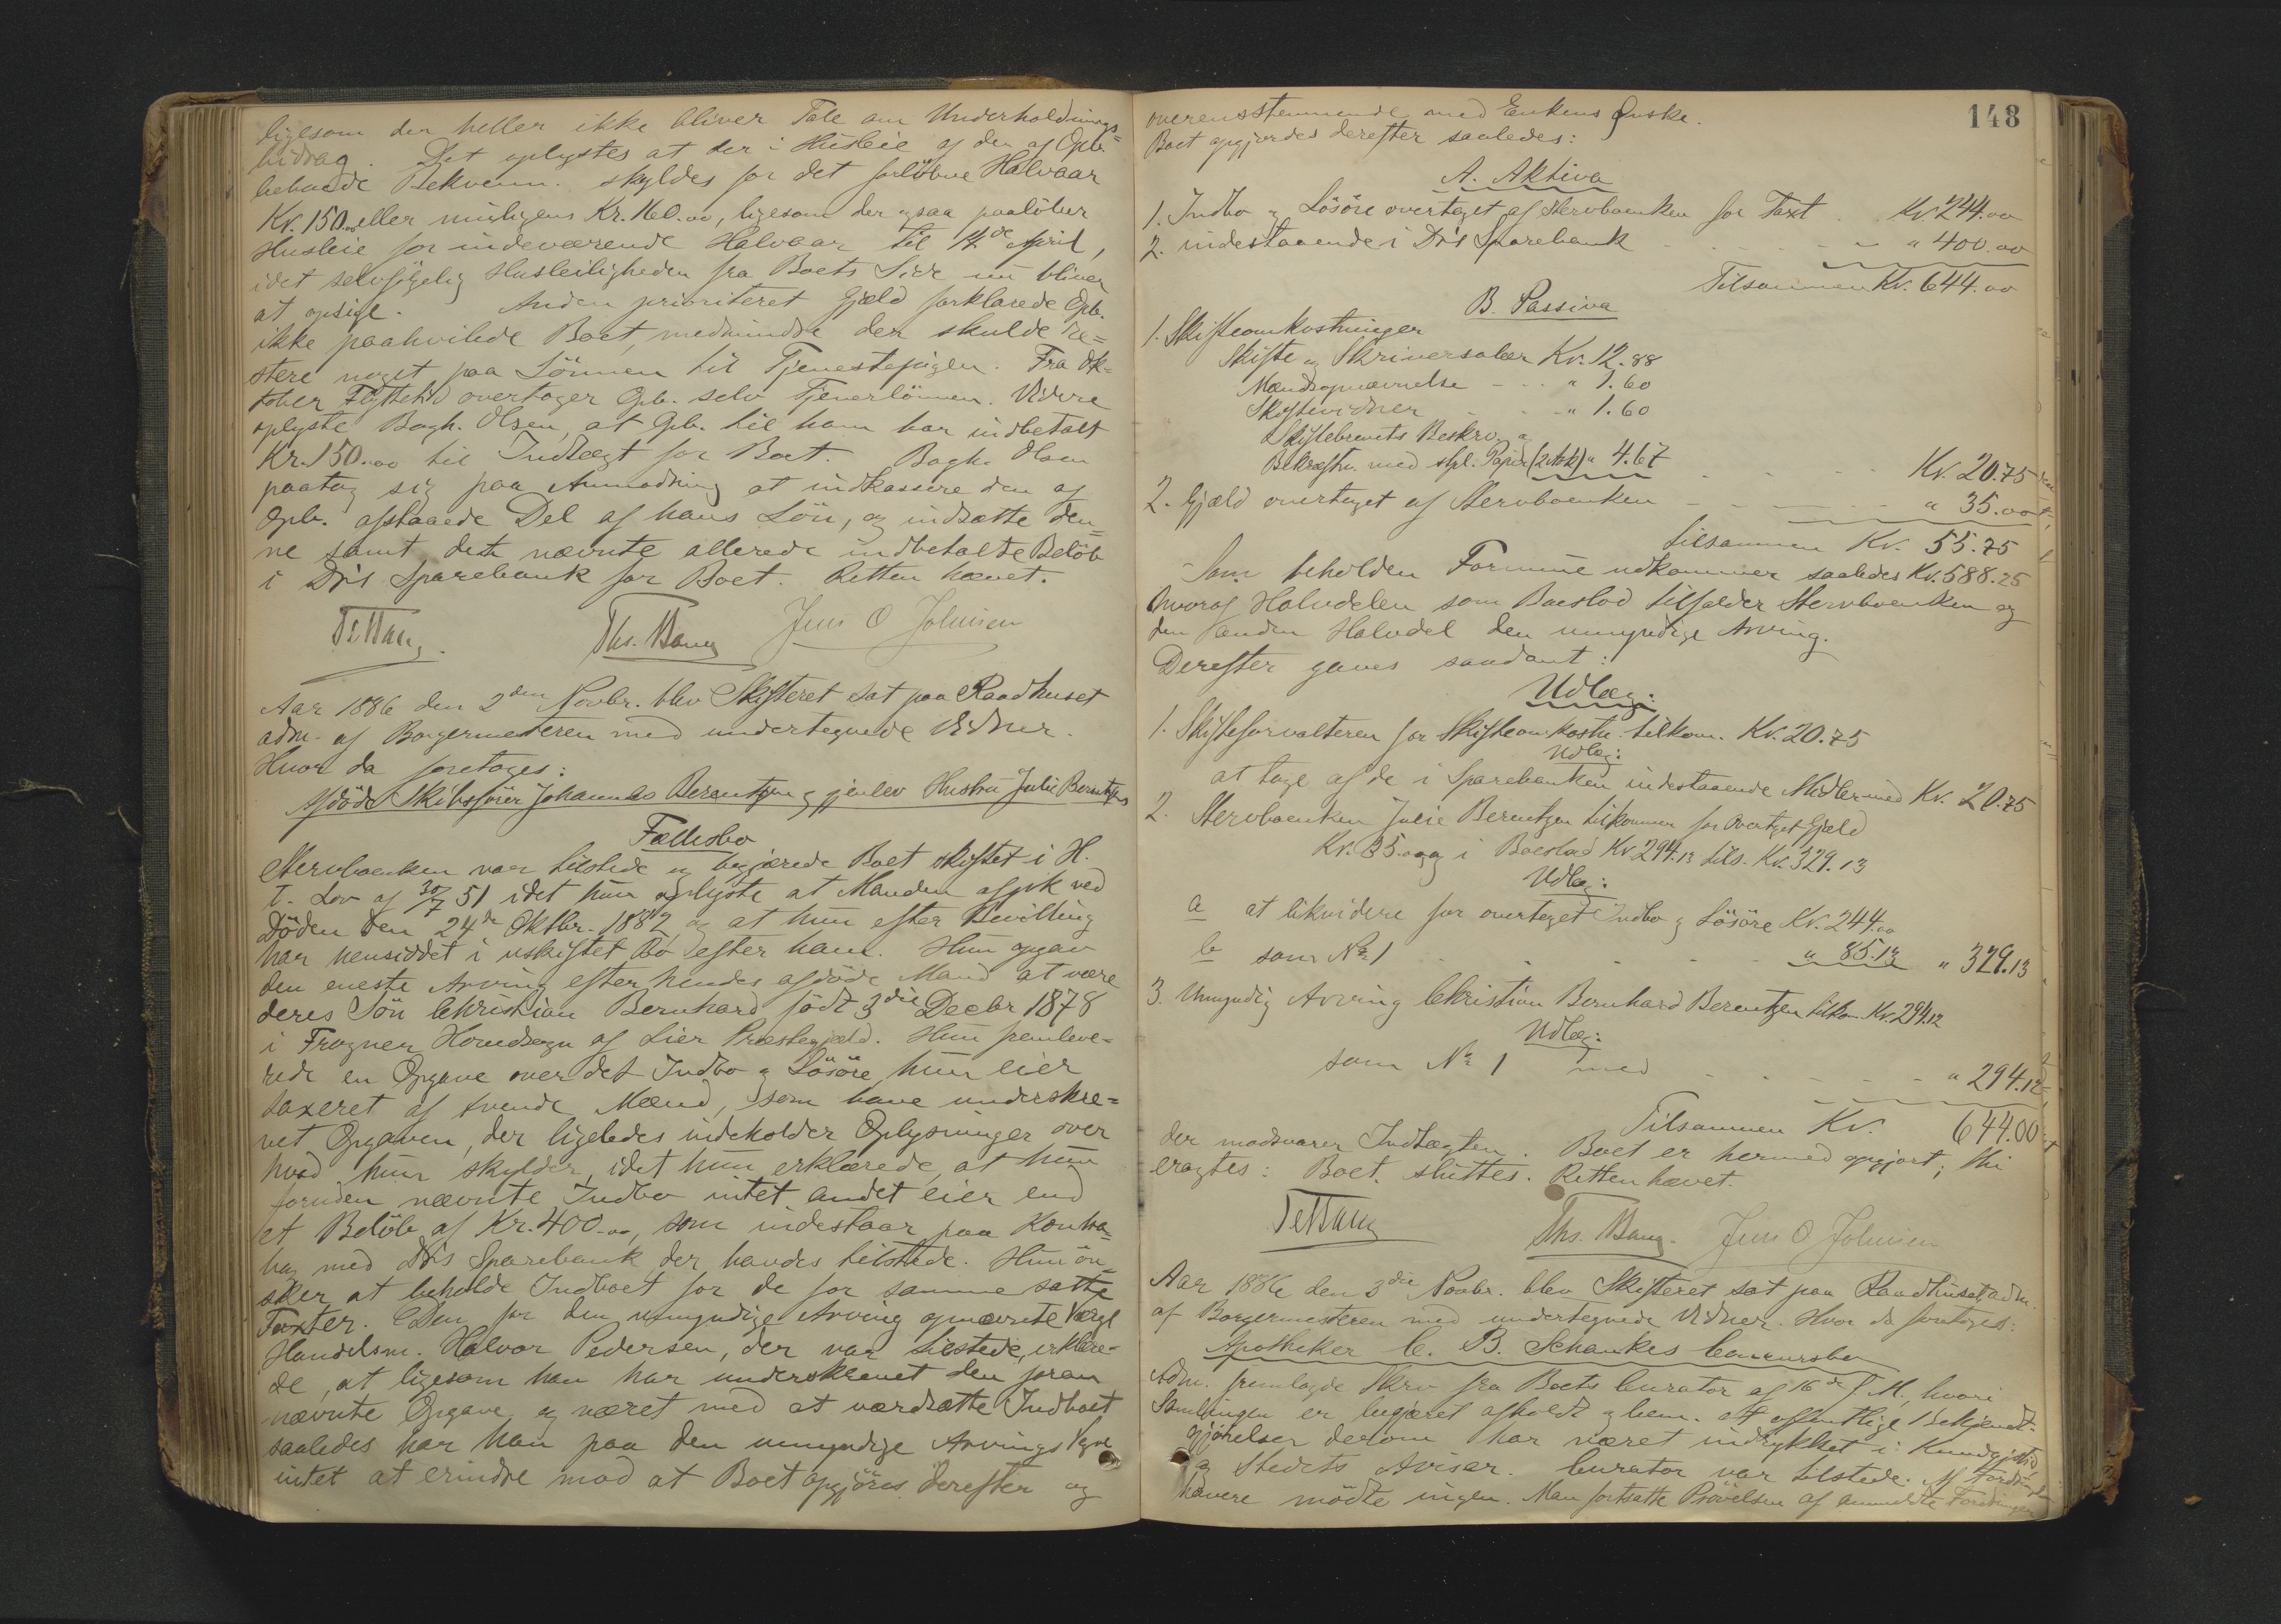 ligesom der heller ikke bliver Tale om Underholdnings=
bidrag. Det oplystes at der i Husleie af den af Opb.
beboede Bekvemm. skyldes for det forløbne Halvaar
Kr. 150.00 eller muligens Kr. 160.00, ligesom der ogsaa paaløber
Husleie for indeværende Halvaar til 14de April,
idet selvfølgelig Husleiligheden fra Boets Side nu bliver
at opsige. Anden prioriteret Gjæld forklarede Opb.
ikke paahvilede Boet, medmindre der skulde re=
stere noget paa Lønnen til Tjenestepigen. Fra Ok=
tober Flyttetid overtager Opb. selv Tjenerlønnen. Videre
oplyste Bogh. Olsen, at Opb. til ham har indbetalt
Kr. 150.00 til Indtægt for Boet. Bogh. Olsen
paatog sig paa Anmodning at indkassere den af
Opb. afstaaede Del af hans Løn, og indsætte den=
ne samt det nævnte allerede indbetalte Beløb
i Drs Sparebank for Boet. Retten hævet.
Ths. Bang Jens O Johnsen
Aar 1886 den 2den Novbr. blev Skifteret sat paa Raadhuset
adm. af Borgermesteren med undertegnede Vidner.
Hvor da foretoges:
Afdøde Skibsfører Johannes Berentzen og gjenlev Hustru Julie Berentzens
Fællesbo
Stervboenken var tilstede og begjærede Boet skiftet i H.
t. Lov af 30/7 51 idet hun oplyste at Manden afgik ved
Døden den 24de Oktbr. 1882, og at hun efter Bevilling
har hensiddet i uskiftet Bo efter ham. Hun opgav
den eneste Arving efter hendes afdøde Mand at være
deres Søn Christian Bernhard født 3die Decbr 1878
i Frogner Hovedsogn af Lier Præstegjæld. Hun fremleve=
rede en Opgave over det Indbo og Løsøre hun eier
taxeret af tvende Mænd, som have underskre=
vet Opgaven, der ligeledes indeholder Oplysninger over
hvad hun skylder, idet hun erklærede, at hun
foruden nævnte Indbo intet andet eier end
et Beløb af Kr. 400.00, som indestaar paa Kontra=
bog med Drs Sparebank der havdes tilstede. Hun øn=
sker at beholde Indboet for de for samme satte
Taxter. Den for den umyndige Arving opnævnte Værge
Handelsm. Halvor Pedersen, der var tilstede, erklære=
de, at ligesom han har underskrevet den foran
nævnte Opgave og været med at værdsætte Indboet
saaledes har han paa den umyndige Arvings Vegne
intet at erindre mod at Boet opgjøres derefter og
148
overensstemmende med Enkens Ønske.
Boet opgjordes derefter saaledes:
A. Aktiva
1. Indbo og Løsøre overtaget af Stervboenken for Taxt. Kr. 244.00
2. indestaaende i Drs Sparebank " 400.00
Tilsammen Kr. 644.00
B. Passiva
1. Skifteomkostninger
Skifte og Skriversalær Kr. 12.88
Mandsopnævnelse " 1.60
Skiftevidner " 1.60
Skiftebrevets Beskriv. og
Bekræftn. med stpl. Papir (2 Ark) " 4.67
Kr. 20.75
2. Gjæld overtaget af Stervboenken " 35.00
tilsammen Kr. 55.75
Som beholden Formue udkommer saaledes Kr. 588.25
hvoraf Halvdelen som Boeslod tilfalder Stervboenken og
den anden Halvdel den umyndige Arving.
Derefter gaves saadant:
Udlæg:
1. Skifteforvalteren for Skifteomkostn. tilkom. Kr. 20.75
Udlæg:
at tage af de i Sparebanken indestaaende Midler med Kr. 20.75
2. Stervboenken Julie Berentzen tilkommer for overtaget Gjæld
Kr. 35.00 og i Boeslod Kr. 294.13 tils. Kr. 329.13
Udlæg:
a at likvidere for overtaget Indbo og Løsøre Kr. 244.00
b som No 1 " 85.13 " 329.13
3. Umyndig Arving Christian Bernhard Berentzen tilkom. Kr. 294.12
Udlæg:
som No 1 med " 294.12
Tilsammen Kr. 644.00
der modsvarer Indtægten. Boet er hermed opgjort; thi
eragtes: Boet sluttes. Retten hævet.
Ths. Bang. Jens O Johnsen
Aar 1886 den 3die Novbr. blev Skifteret sat paa Raadhuset adm.
af Borgermesteren med undertegnede Vidner. Hvor da foretoges:
Apotheker C. B. Schankes Concursbo
Adm. fremlagde Skriv. fra Boets Curator af 16de f. M., hvori
Samlingen er begjæret afholdt og bem. at offentlige Bekjendt=
gjørelser derom har været indrykket i Kundgj.tid.
og Stedets Aviser. Curator var tilstede. Af Fordrings
havere mødte ingen. Man fortsatte Prøvelsen af anmeldte Fordringer